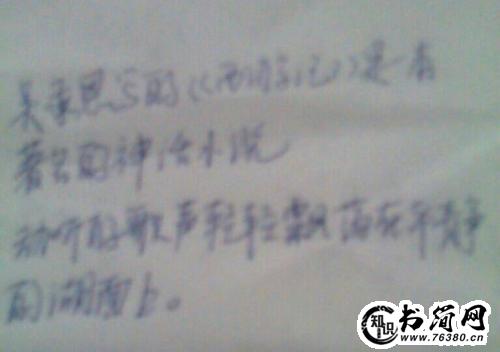 吴承恩写的《西游记》是有
著名的神话小说
动听的歌声轻轻飘荡在平静
的湖面上。
知识
书简网
www.76380.cn